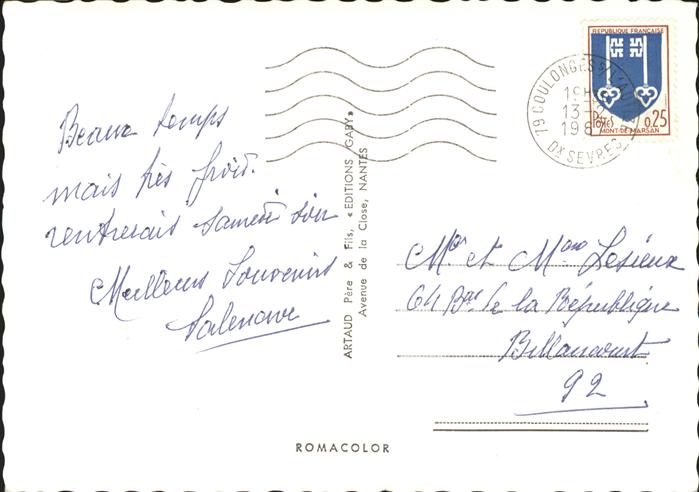 Beau temps
mais très froid.
rentrerais samedi soir
Meilleurs Souvenirs
ARTAUD Père & Fils, «EDITIONS GABY»
Avenue de la Close, NANTES
REPUBLIQUE FRANÇAISE
Postes
0,25
MONT-DE-MARSAN
79 COULONGES S/L'AU
19H
13-
196
DX SEVRES
Mr et Mme Lesieux
64 Bd de la République
Billancourt
92
ROMACOLOR